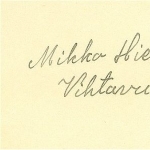 Mikko Hie
Vihtavu